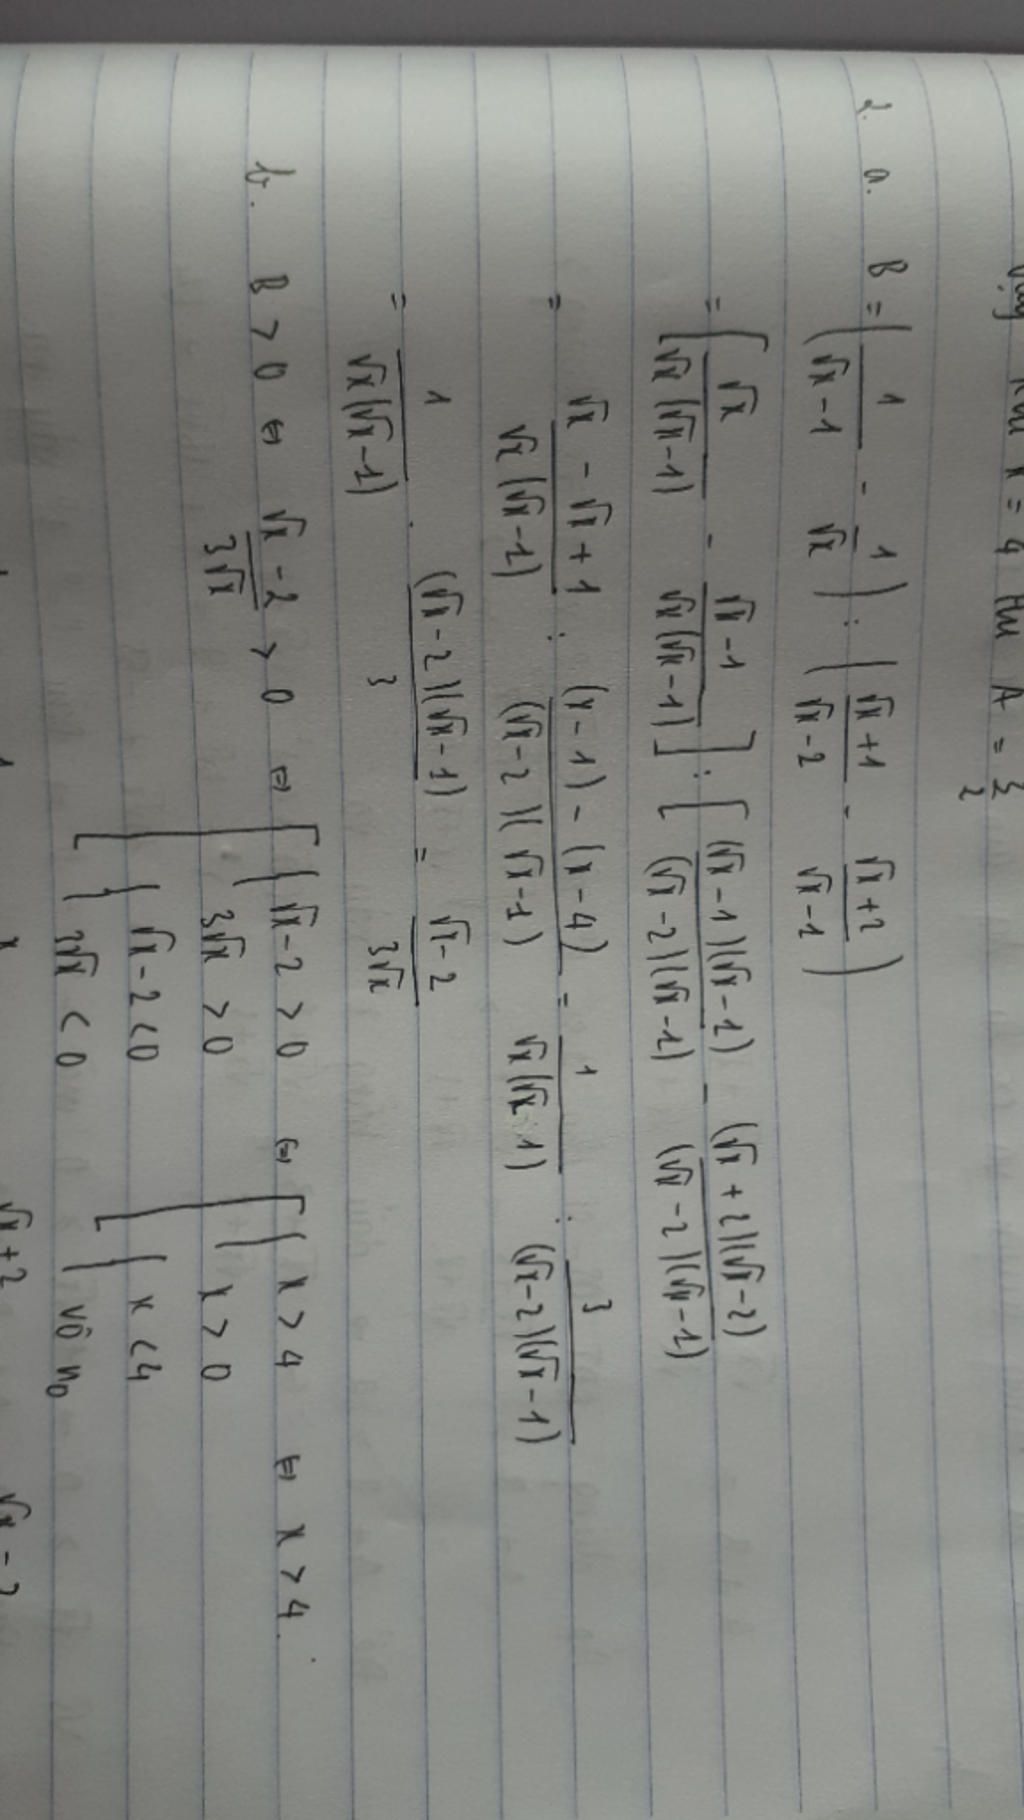 Vậy khi x = 4 thì A = 3/2
2. a. B = (1/(√x-1) - 1/√x) : ((√x+1)/(√x-2) - (√x+2)/(√x-1))
= [√x/(√x(√x-1)) - (√x-1)/(√x(√x-1))] : [(√x-1)(√x-1)/((√x-2)(√x-1)) - (√x+2)(√x-2)/((√x-2)(√x-1))]
= (√x - √x + 1)/(√x(√x-1)) : ((x-1) - (x-4))/((√x-2)(√x-1)) = 1/(√x(√x-1)) : 3/((√x-2)(√x-1))
= 1/(√x(√x-1)) . (√x-2)(√x-1)/3 = (√x-2)/(3√x)
b. B > 0 ⇔ (√x-2)/(3√x) > 0 ⇔ [ { √x-2 > 0 ⇔ [ { x > 4 ⇔ x > 4.
3√x > 0 x > 0
{ √x-2 < 0 { x < 4
3√x < 0 vô n₀
√x+2 √x-2